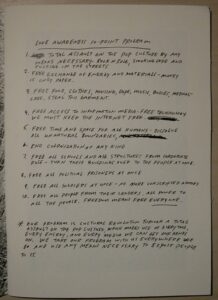 LOVE AWARENESS 10-POINT PROGRAM
1. TOTAL ASSAULT ON THE POP CULTURE BY ANY
MEANS NECESSARY. ROCK N ROLL, SMOKING DOPE AND
FUCKING IN THE STREETS
2. FREE EXCHANGE OF ENERGY AND MATERIALS - MONEY
IS ONLY PAPER.
3. FREE FOOD, CLOTHES, HOUSING, DOPE, MUSIC, BODIES, MEDICAL
CARE,
4. FREE ACCESS TO INFORMATION MEDIA - FREE TECHNOLOGY
WE MUST KEEP THE INTERNET FREE
5. FREE TIME AND SPACE FOR ALL HUMANS - DISSOLVE
ALL UNNATURAL BOUNDARIES,
6. END CORPORATION OF ANY KIND
7. FREE ALL SCHOOLS AND ALL STRUCTURES FROM CORPORATE
RULE - TURN THEIR BUILDINGS OVER TO THE PEOPLE AT ONCE
8. FREE ALL POLITICAL PRISONERS AT ONCE
9. FREE ALL SOLDIERS AT ONCE - NO MORE CONSCRIPTED ARMIES
10. FREE ALL PEOPLE FROM THEIR LEADERS, ALL POWER TO
ALL THE PEOPLE. FREEDOM MEANS FREE EVERYONE
OUR PROGRAM IS CULTURAL REVOLUTION THROUGH A TOTAL
ASSAULT ON THE POP CULTURE, WHICH MAKES USE OF EVERY TOOL
EVERY ENERGY, AND EVERY MEDIA WE CAN GET OUR HANDS
ON. WE TAKE OUR PROGRAM WITH US EVERYWHERE WE
GO AND USE ANY MEANS NECESSARY TO EXPOSE PEOPLE
TO IT